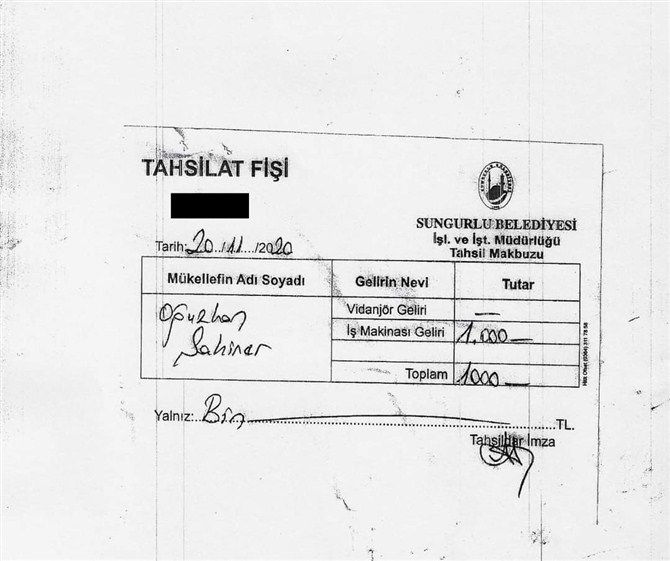 TAHSİLAT FİŞİ
SUNGURLU BELEDİYESİ
İşl. ve İşt. Müdürlüğü
Tahsil Makbuzu
Tarih: 20../11..../2020
Mükellefin Adı Soyadı Gelirin Nevi Tutar
Oğuzhan
Şahiner
Vidanjör Geliri —
İş Makinası Geliri 1.000 —
Toplam 1000 —
Yalnız: Bin TL.
Tahsildar İmza